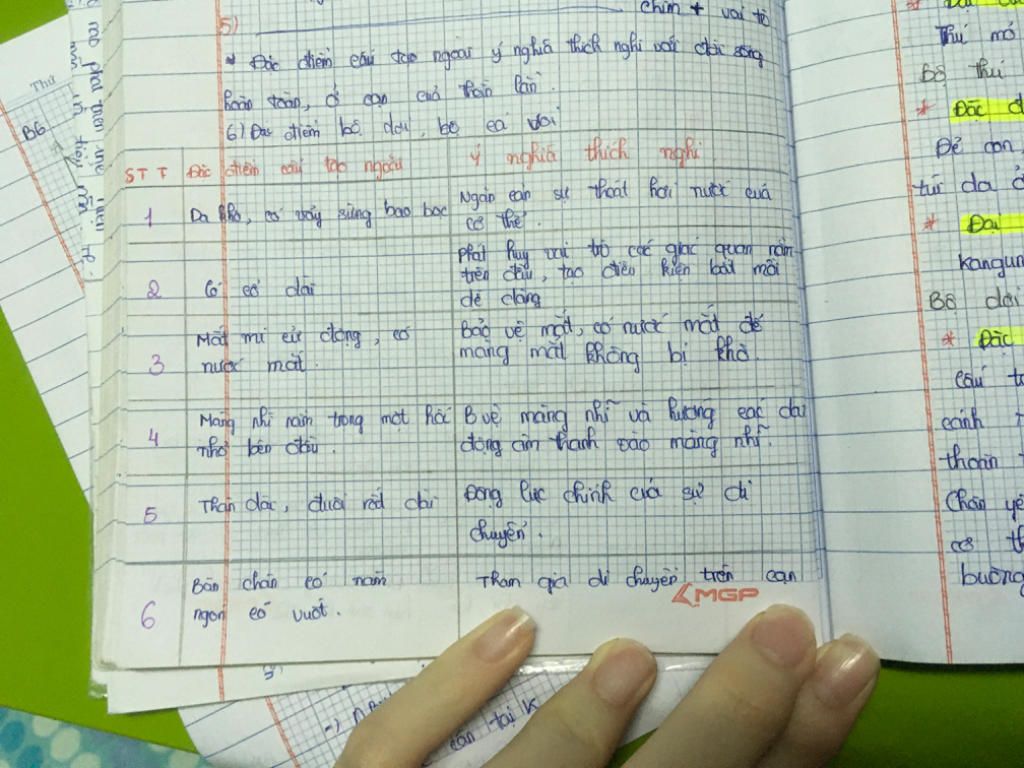 chim + vai trò
5)
* Đặc điểm cấu tạo ngoài ý nghĩa thích nghi với đời sống
hoàn toàn, ở cạn của thằn lằn.
6) Đặc điểm bộ dơi, bộ cá voi
STT Đặc điểm cấu tạo ngoài Ý nghĩa thích nghi
1 Da khô, có vảy sừng bao bọc Ngăn cản sự thoát hơi nước của
cơ thể.
2 Có cổ dài Phát huy vai trò các giác quan nằm
trên đầu, tạo điều kiện bắt mồi
dễ dàng
3 Mắt mi cử động, có Bảo vệ mắt, có nước mắt để
nước mắt. màng mắt không bị khô.
4 Màng nhĩ nằm trong một hốc B vệ màng nhĩ và hướng các dao
nhỏ bên đầu. động âm thanh vào màng nhĩ.
5 Thân dài, đuôi rất dài Động lực chính của sự di
chuyển.
6 Bàn chân có năm Tham gia di chuyển trên cạn
ngón có vuốt.
MGP
Thứ
B6
Thú mỏ
Bộ thú
* Đặc đ
Đẻ con,
túi da ở
* Đại
kanguru
Bộ dơi
* Đặc
cấu t
cánh
Chân yế
cơ th
buông
dán tại K